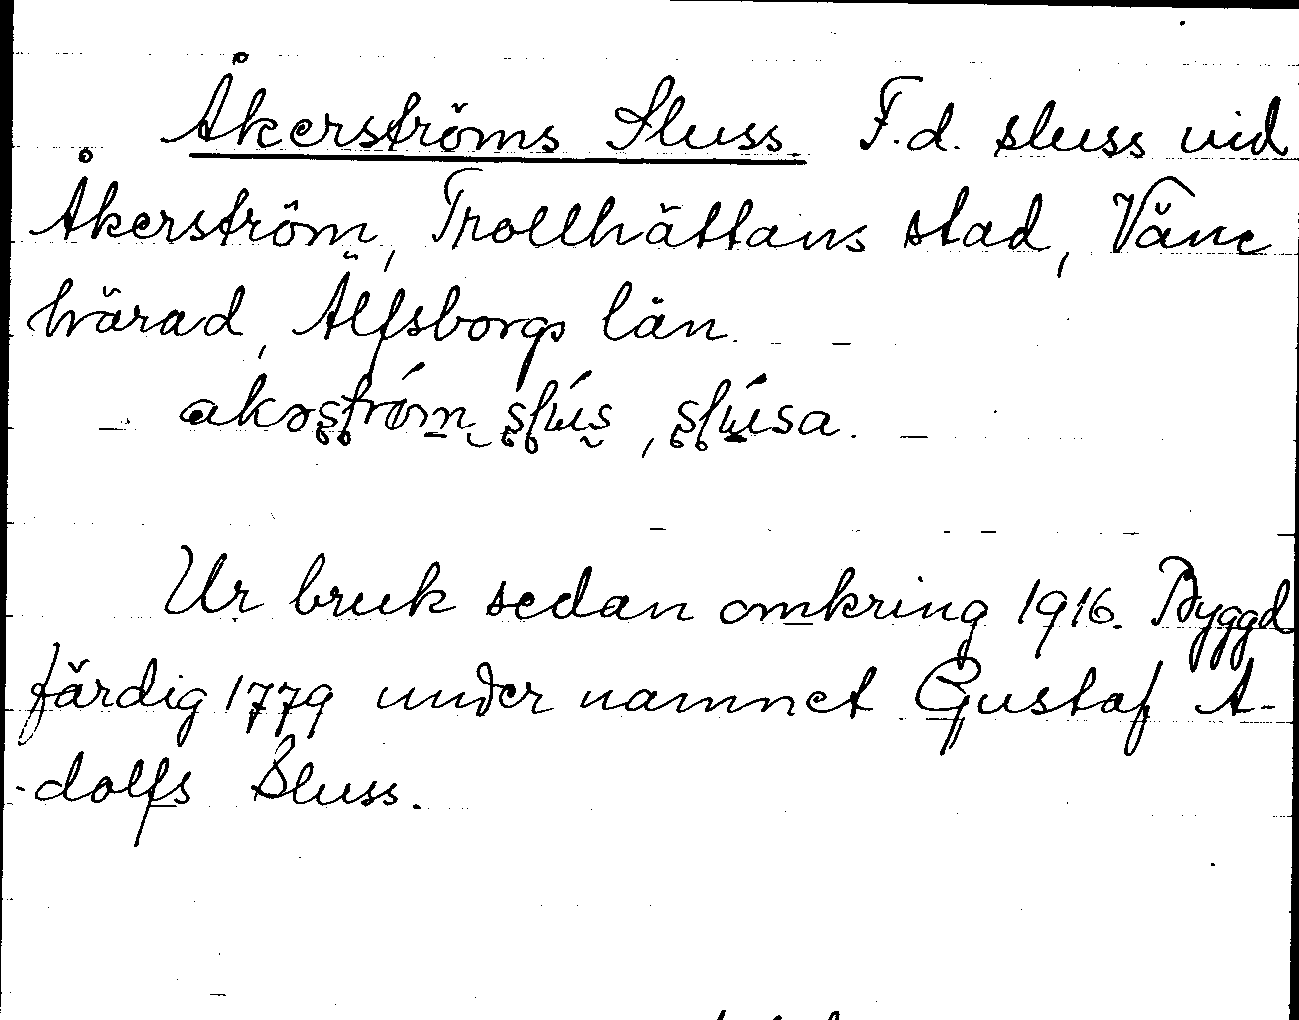 Åkerströms Sluss. F.d. sluss vid
Åkerström, Trollhättans stad, Väne
härad, Älfsborgs län.
Ur bruk sedan omkring 1916. Byggd
färdig 1779 under namnet Gustaf A-
-dolfs Sluss.